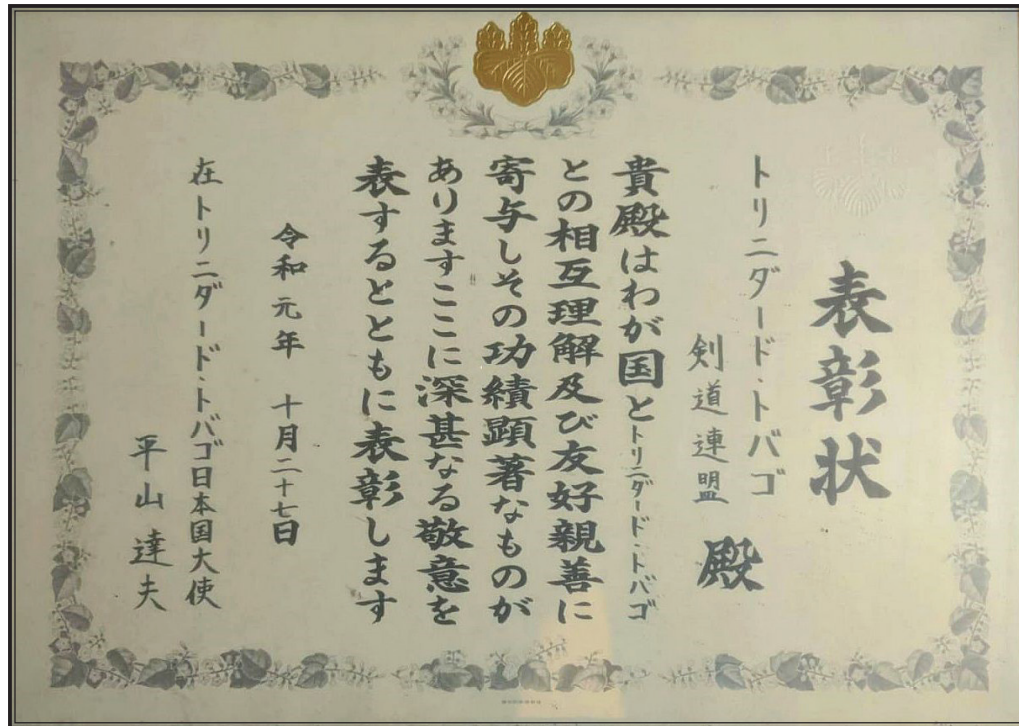 表彰状
トリニダード・トバゴ
剣道連盟 殿
貴殿はわが国とトリニダード・トバゴ
との相互理解及び友好親善に
寄与しその功績顕著なものが
ありますここに深甚なる敬意を
表するとともに表彰します
令和元年 十月二十七日
在トリニダード・トバゴ日本国大使
平山達夫